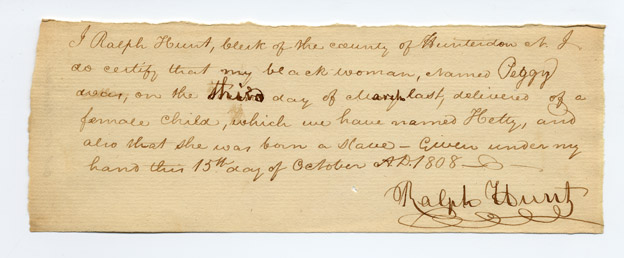 I Ralph Hunt, Clerk of the county of Hunterdon N. J
do certify that my black woman, Named Peggy
was, on the third day of March last, delivered of a
female child, which we have named Hetty, and
also that she was born a slave – Given under my
hand this 15th day of October A.D. 1808 –
Ralph Hunt